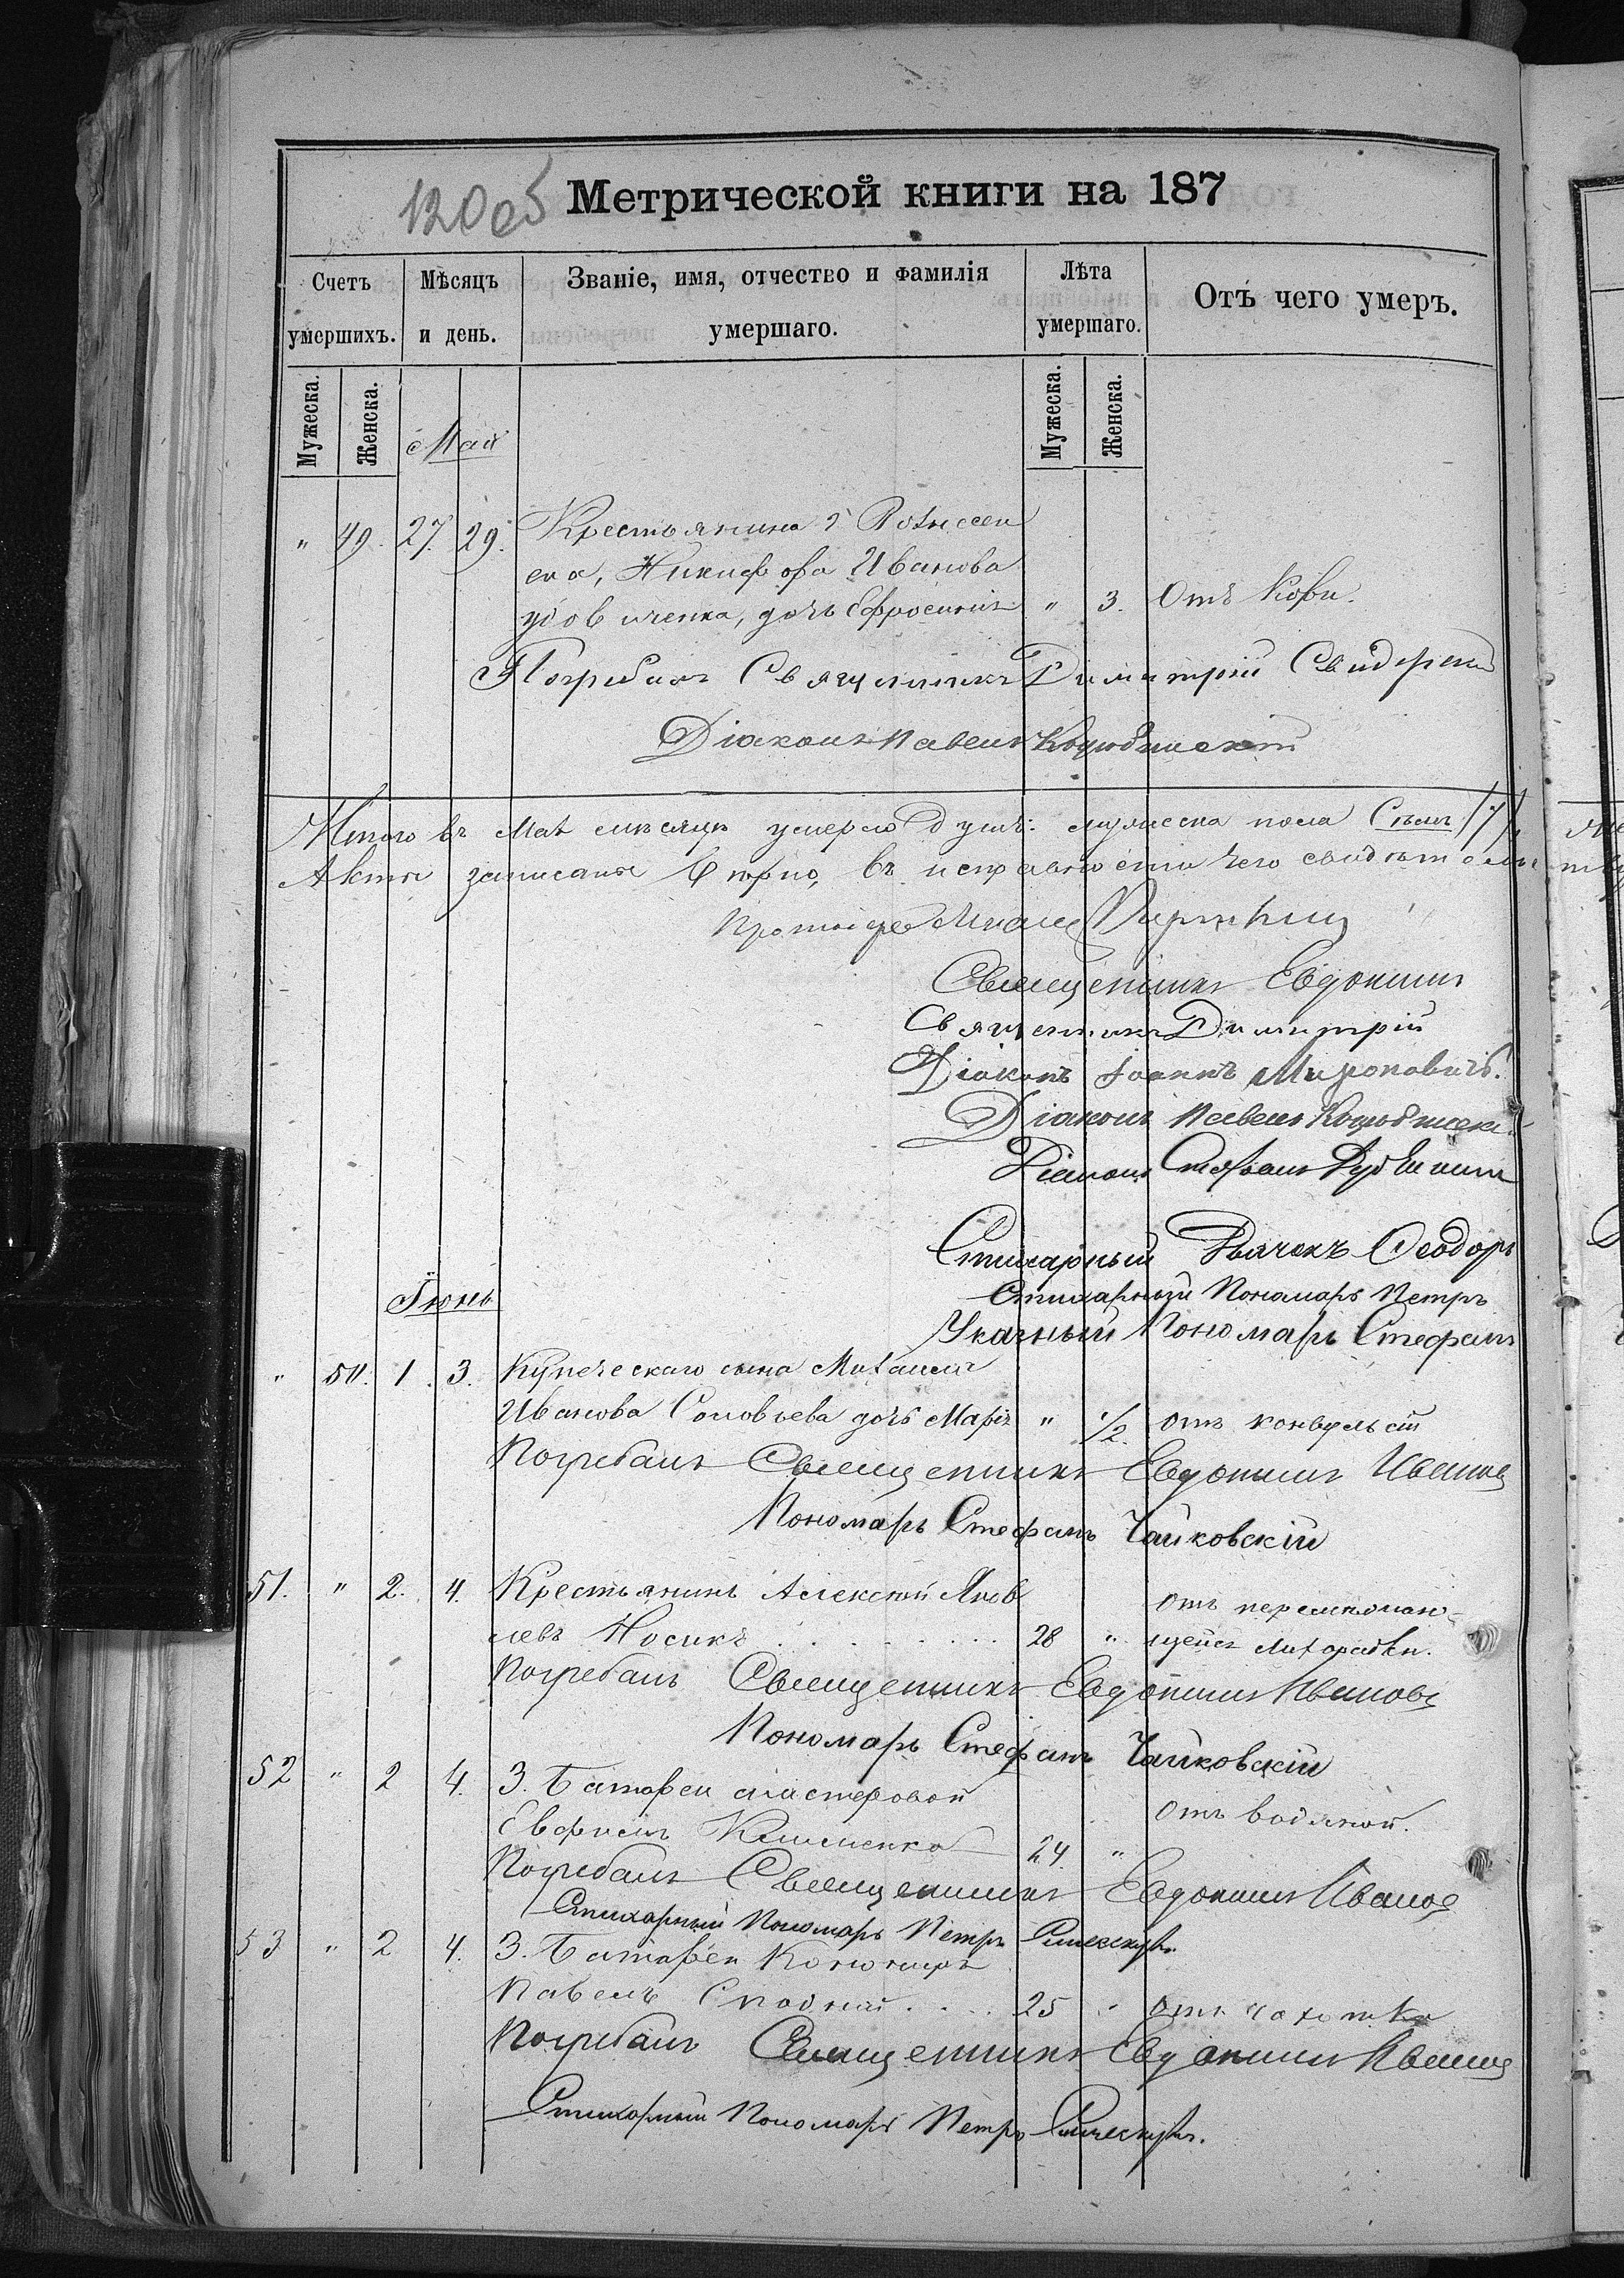 120об Метрической книги на 187
Счетъ умершихъ.
Мѣсяцъ и день.
Званіе, имя, отчество и фамилія умершаго.
Лѣта умершаго.
Отъ чего умеръ.
Мужеска. Женска. Мужеска. Женска.
Май
" 49. 27. 29. Крестьянина
Никифора Иванова
дочь Ефросинія " 3. Отъ Кори.
Погребалъ Священникъ Димитрій Свидерскій
Діаконъ Павелъ Коцюбинскій
Итого въ Маѣ мѣсяцѣ умерло душъ: мужеска пола Семь /7/,
Акты записаны вѣрно, въ исправности чего свидѣтель
Священникъ Евдокимъ
Священникъ Димитрій
Діаконъ Іоаннъ Мироновичъ.
Діаконъ Павелъ Коцюбинскі
Діаконъ Стефанъ
Стихарный Дьячекъ Ѳеодоръ
Стихарный Пономарь Петръ
Іюнь
Указный Пономарь Стефанъ
" 50. 1. 3. Купеческаго сына Михаила
Иванова Соловьева дочь Марія " 1/2. отъ конвульсій
Погребалъ Священникъ Евдокимъ Иванов
Пономарь Стефанъ Чайковскій
51. " 2. 4. Крестьянинъ Алексѣй Яков
левъ Носикъ . . . . . . . . 28 " отъ перемежаю-
щейся лихорадки.
Погребалъ Священникъ Евдокимъ Ивановъ
Пономарь Стефанъ Чайковскій
52 " 2 4. 3. Батареи мастеровой
Евфимъ Клименко 24. " отъ водяной.
Погребалъ Священникъ Евдокимъ Иванов
Стихарный Пономарь Петръ
53 " 2 4. 3. Батареи
Павелъ . . . . 25 " отъ чахотки
Погребалъ Священникъ Евдокимъ Иванов
Стихарный Пономарь Петръ